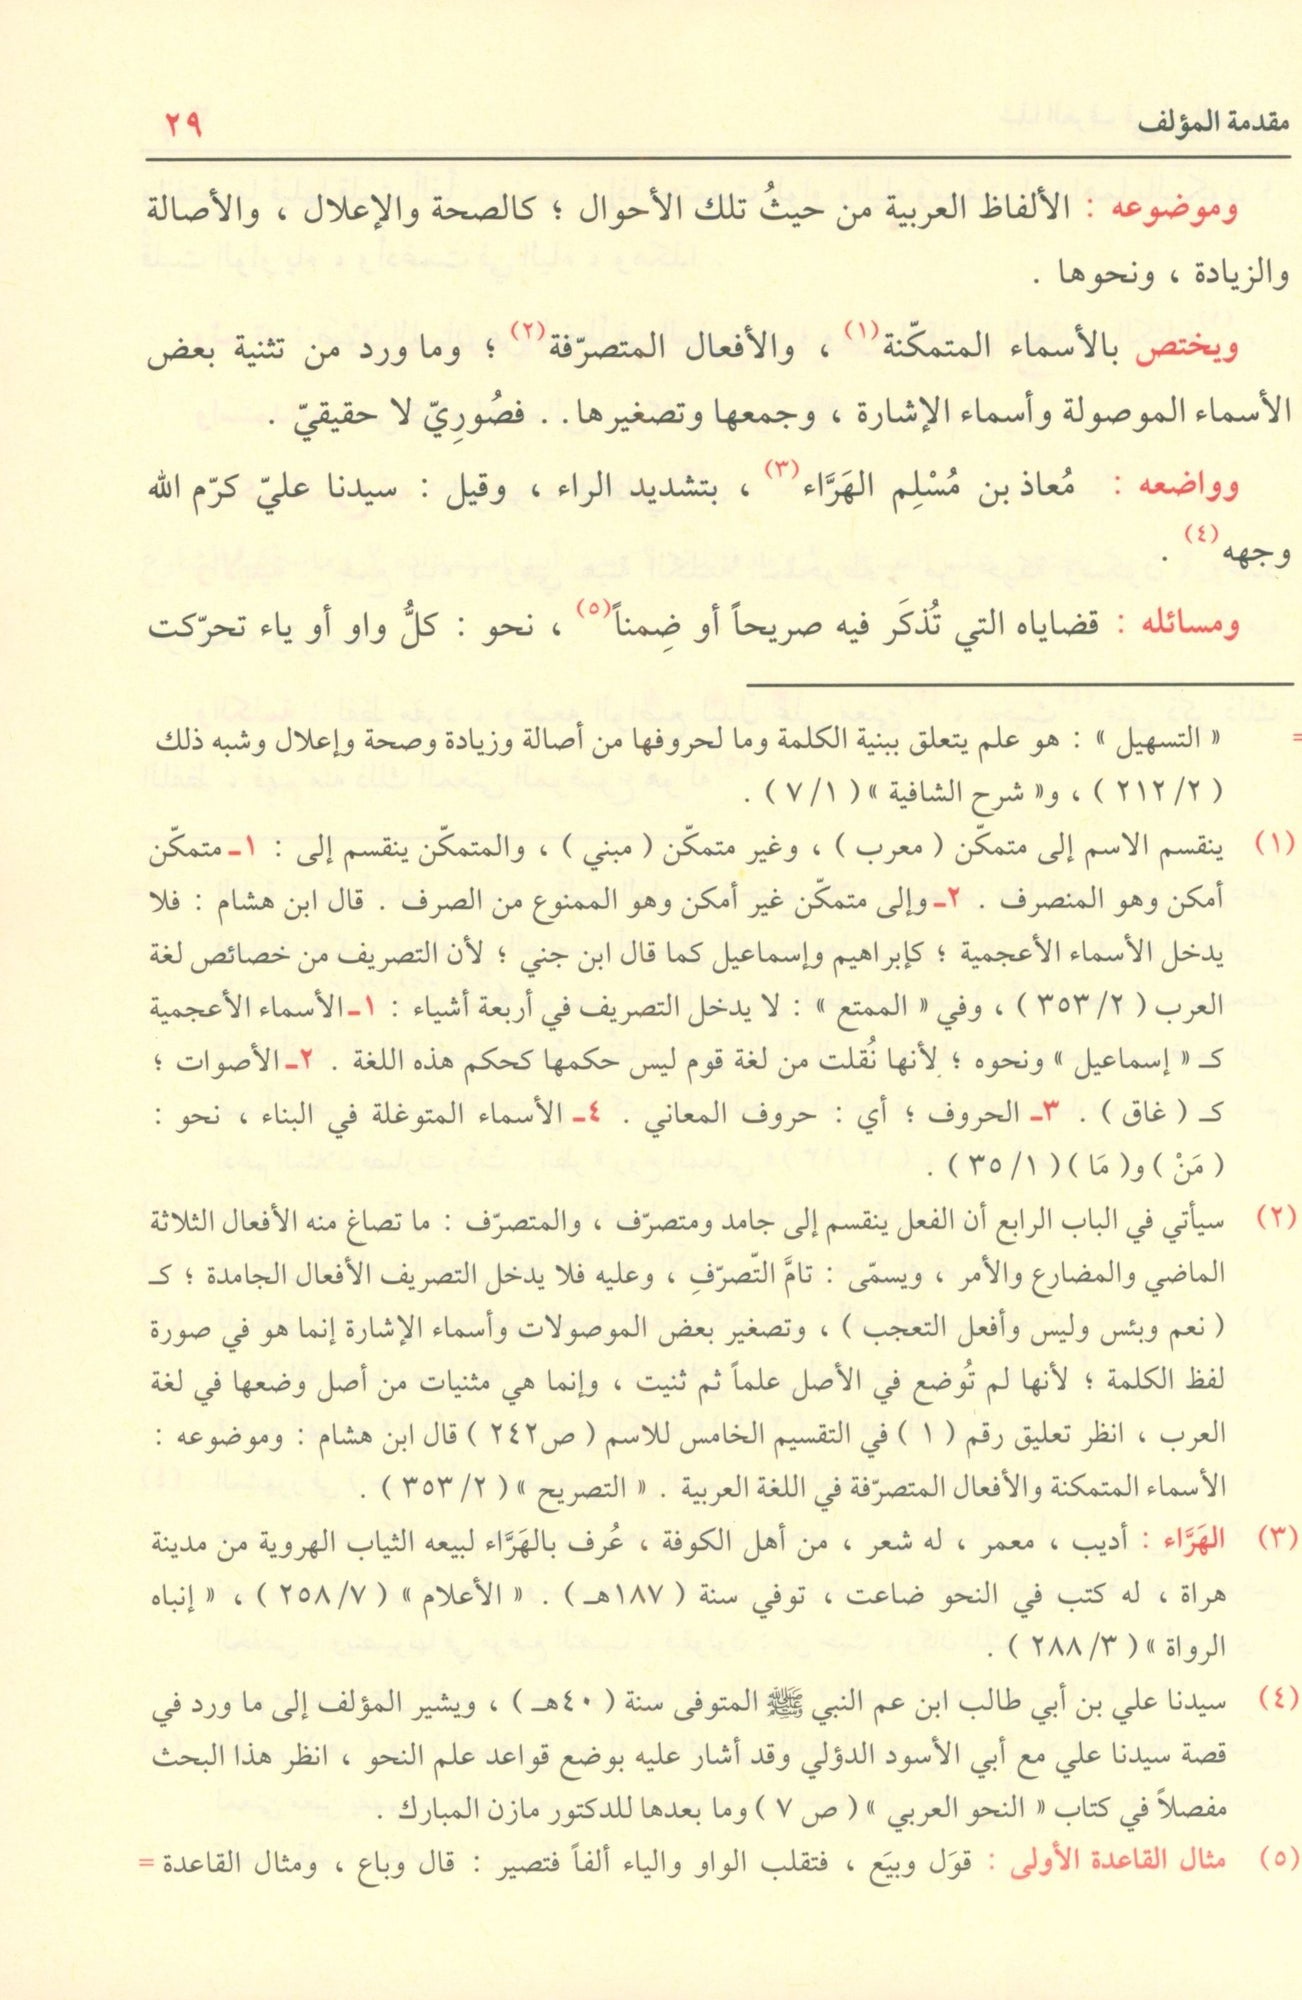 مقدمة المؤلف ٢٩
وموضوعه : الألفاظ العربية من حيثُ تلك الأحوال ؛ كالصحة والإعلال ، والأصالة
والزيادة ، ونحوها .
ويختص بالأسماء المتمكّنة(١) ، والأفعال المتصرّفة(٢) ؛ وما ورد من تثنية بعض
الأسماء الموصولة وأسماء الإشارة ، وجمعها وتصغيرها. . فصُورِيّ لا حقيقيّ .
وواضعه : مُعاذ بن مُسْلِم الهَرَّاء(٣) ، بتشديد الراء ، وقيل : سيدنا عليّ كرّم الله
وجهه(٤) .
ومسائله : قضاياه التي تُذكَر فيه صريحاً أو ضِمناً(٥) ، نحو : كلُّ واو أو ياء تحرّكت
= « التسهيل » : هو علم يتعلق ببنية الكلمة وما لحروفها من أصالة وزيادة وصحة وإعلال وشبه ذلك
( ٢/ ٢١٢ ) ، و« شرح الشافية » ( ١/ ٧ ) .
(١) ينقسم الاسم إلى متمكّن ( معرب ) ، وغير متمكّن ( مبني ) ، والمتمكّن ينقسم إلى : ١ـ متمكّن
أمكن وهو المنصرف . ٢ـ وإلى متمكّن غير أمكن وهو الممنوع من الصرف . قال ابن هشام : فلا
يدخل الأسماء الأعجمية ؛ كإبراهيم وإسماعيل كما قال ابن جني ؛ لأن التصريف من خصائص لغة
العرب ( ٢/ ٣٥٣ ) ، وفي « الممتع » : لا يدخل التصريف في أربعة أشياء : ١ـ الأسماء الأعجمية
كـ « إسماعيل » ونحوه ؛ لأنها نُقلت من لغة قوم ليس حكمها كحكم هذه اللغة . ٢ـ الأصوات ؛
كـ ( غاق ) . ٣ـ الحروف ؛ أي : حروف المعاني . ٤ـ الأسماء المتوغلة في البناء ، نحو :
( مَنْ ) و( مَا ) ( ١/ ٣٥ ) .
(٢) سيأتي في الباب الرابع أن الفعل ينقسم إلى جامد ومتصرّف ، والمتصرّف : ما تصاغ منه الأفعال الثلاثة
الماضي والمضارع والأمر ، ويسمّى : تامَّ التّصرّفِ ، وعليه فلا يدخل التصريف الأفعال الجامدة ؛ كـ
( نعم وبئس وليس وأفعل التعجب ) ، وتصغير بعض الموصولات وأسماء الإشارة إنما هو في صورة
لفظ الكلمة ؛ لأنها لم تُوضع في الأصل علماً ثم ثنيت ، وإنما هي مثنيات من أصل وضعها في لغة
العرب ، انظر تعليق رقم ( ١ ) في التقسيم الخامس للاسم ( ص٢٤٢ ) قال ابن هشام : وموضوعه :
الأسماء المتمكنة والأفعال المتصرّفة في اللغة العربية . « التصريح » ( ٢/ ٣٥٣ ) .
(٣) الهَرَّاء : أديب ، معمر ، له شعر ، من أهل الكوفة ، عُرف بالهَرَّاء لبيعه الثياب الهروية من مدينة
هراة ، له كتب في النحو ضاعت ، توفي سنة ( ١٨٧هـ ) . « الأعلام » ( ٧/ ٢٥٨ ) ، « إنباه
الرواة » ( ٣/ ٢٨٨ ) .
(٤) سيدنا علي بن أبي طالب ابن عم النبي ﷺ المتوفى سنة ( ٤٠هـ ) ، ويشير المؤلف إلى ما ورد في
قصة سيدنا علي مع أبي الأسود الدؤلي وقد أشار عليه بوضع قواعد علم النحو ، انظر هذا البحث
مفصلاً في كتاب « النحو العربي » ( ص ٧ ) وما بعدها للدكتور مازن المبارك .
(٥) مثال القاعدة الأولى : قوَل وبيَع ، فتقلب الواو والياء ألفاً فتصير : قال وباع ، ومثال القاعدة =